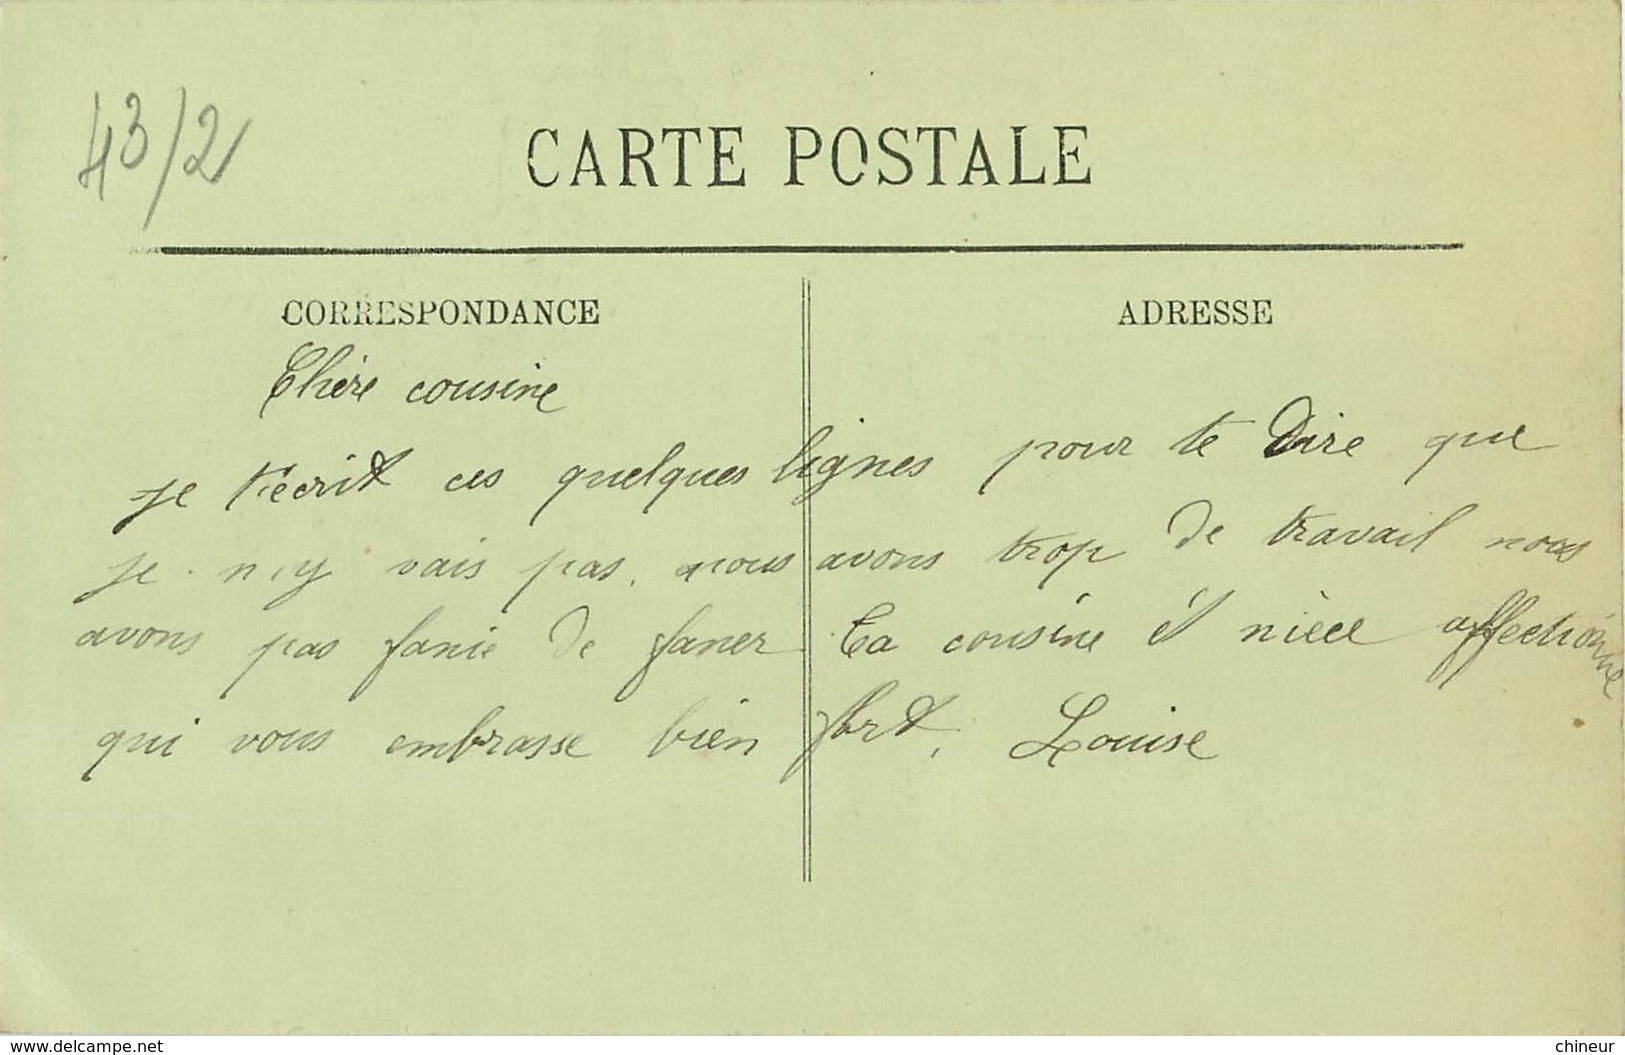 43/2
CARTE POSTALE
CORRESPONDANCE
ADRESSE
Chère cousine
je t'écrit ces quelques lignes pour te dire que
je n,y vais pas, nous avons trop de travail nous
avons pas fanie de faner Ta cousine et nièce affectionne
qui vous embrasse bien fort, Louise
www.delcampe.net
chineur